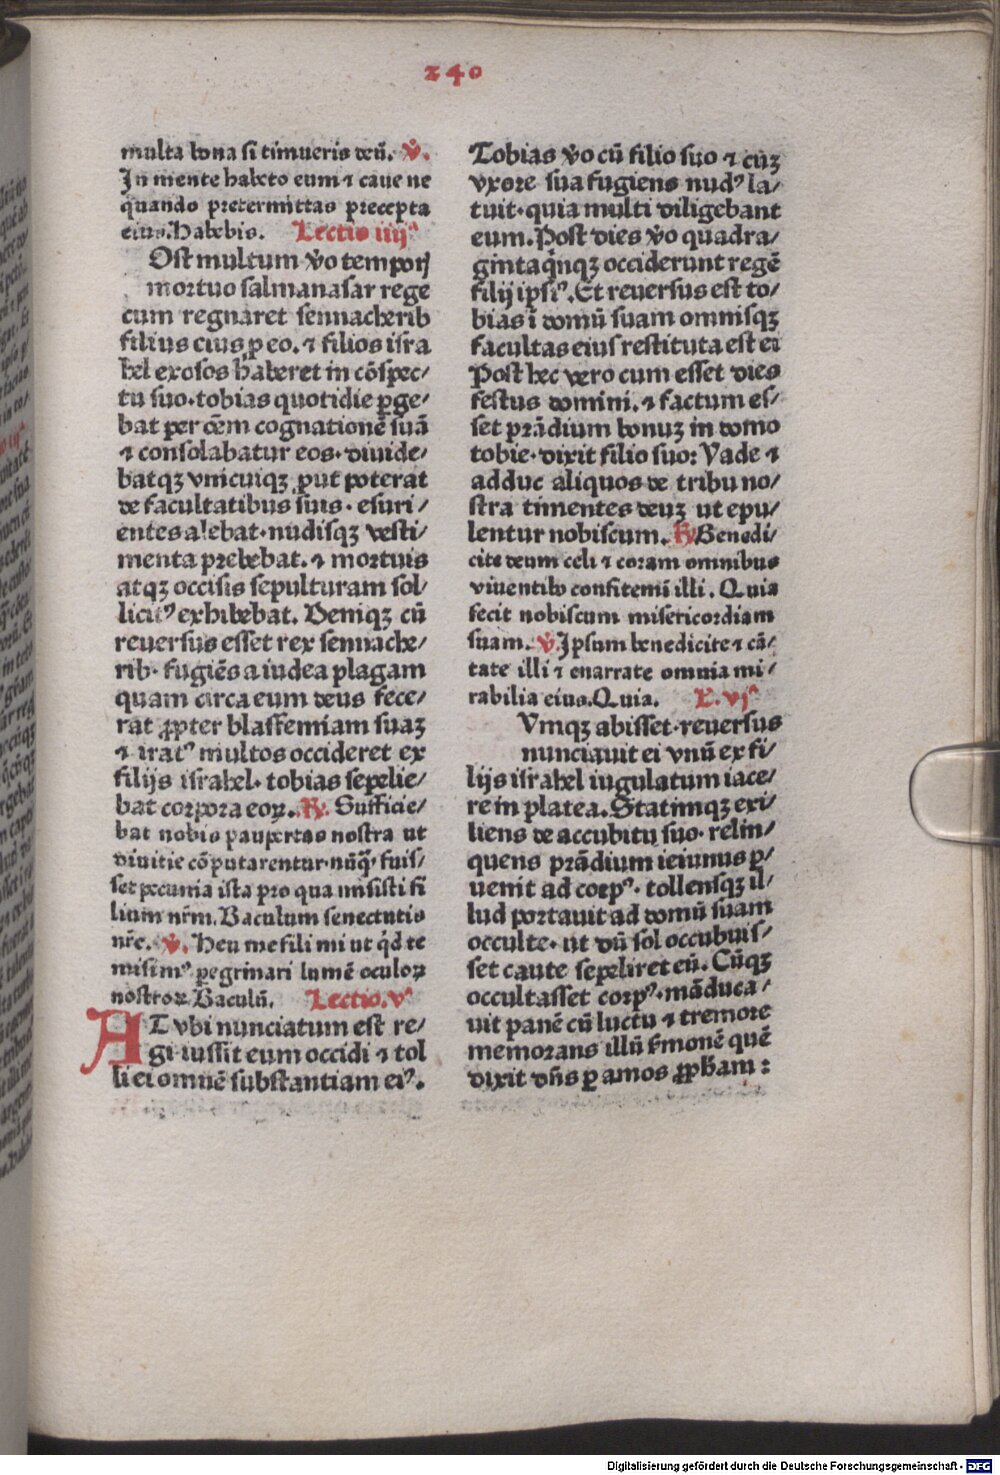 240
multa bona si timueris deū. v̊.
In mente habeto eum ⁊ caue ne
quando pretermittas precepta
eius. Habebis. Lectio iiijᵃ
Ost multum v̊o temporꝭ
mortuo salmanasar rege
cum regnaret sennacherib
filius eius ꝓ eo. ⁊ filios isra
hel exosos haberet in cōspec/
tu suo. tobias quotidie ꝑge/
bat per oēm cognationē suā
⁊ consolabatur eos. diuide/
batqꝫ vnicuiqꝫ ꝓut poterat
de facultatibus suis. esuri/
entes alebat. nudisqꝫ vesti/
menta prebebat. ⁊ mortuis
atqꝫ occisis sepulturam sol/
licitꝰ exhibebat. Deniqꝫ cū
reuersus esset rex sennache/
rib. fugiēs a iudea plagam
quam circa eum deus fece/
rat ꝓpter blasfemiam suaꝫ
⁊ iratꝰ multos occideret ex
filijs israhel. tobias sepelie/
bat corpora eoꝝ. ℟. Sufficie/
bat nobis paupertas nostra ut
diuitie cōputarentur. nūq̄ꝫ fuis/
set pecunia ista pro qua misisti fi
lium nr̄m. Baculum senectutis
nr̄e. v̊. Heu me fili mi ut q̇d te
misimꝰ ꝑegrinari lumē oculoꝝ
nostroꝝ. Baculū. Lectio. vᵃ
AT vbi nunciatum est re/
gi. iussit eum occidi ⁊ tol
li ei omnē substantiam eiꝰ.
Tobias v̊o cū filio suo ⁊ cuꝫ
vxore sua fugiens nudꝰ la/
tuit. quia multi diligebant
eum. Post dies v̊o quadra/
ginta q̇nqꝫ occiderunt regē
filij ipsiꝰ. Et reuersus est to/
bias ī domū suam omnisqꝫ
facultas eius restituta est ei
Post hec vero cum esset dies
festus domini. ⁊ factum es/
set prādium bonuꝫ in domo
tobie. dixit filio suo: Vade ⁊
adduc aliquos de tribu no/
stra timentes deuꝫ ut epu/
lentur nobiscum. ℟ Benedi/
cite deum celi ⁊ coram omnibus
viuentibꝰ confitemī illi. Quia
fecit nobiscum misericordiam
suam. v̊. Ipsum benedicite ⁊ cā/
tate illi ⁊ enarrate omnia mi/
rabilia eius. Quia. L. vjᵃ
Vmqꝫ abisset. reuersus
nunciauit ei vnū ex fi/
lijs israhel iugulatum iace/
re in platea. Statimqꝫ exi/
liens de accubitu suo. relin/
quens prādium ieiunus ꝑ/
uenit ad corpꝰ. tollensqꝫ il/
lud portauit ad domū suam
occulte. ut dū sol occubuis/
set caute sepeliret eū. Cūqꝫ
occultasset corpꝰ. māduca/
uit panē cū luctu ⁊ tremore
memorans illū s̓monē quē
dixit dn̄s ꝑ amos ꝓpham:
Digitalisierung gefördert durch die Deutsche Forschungsgemeinschaft - DFG